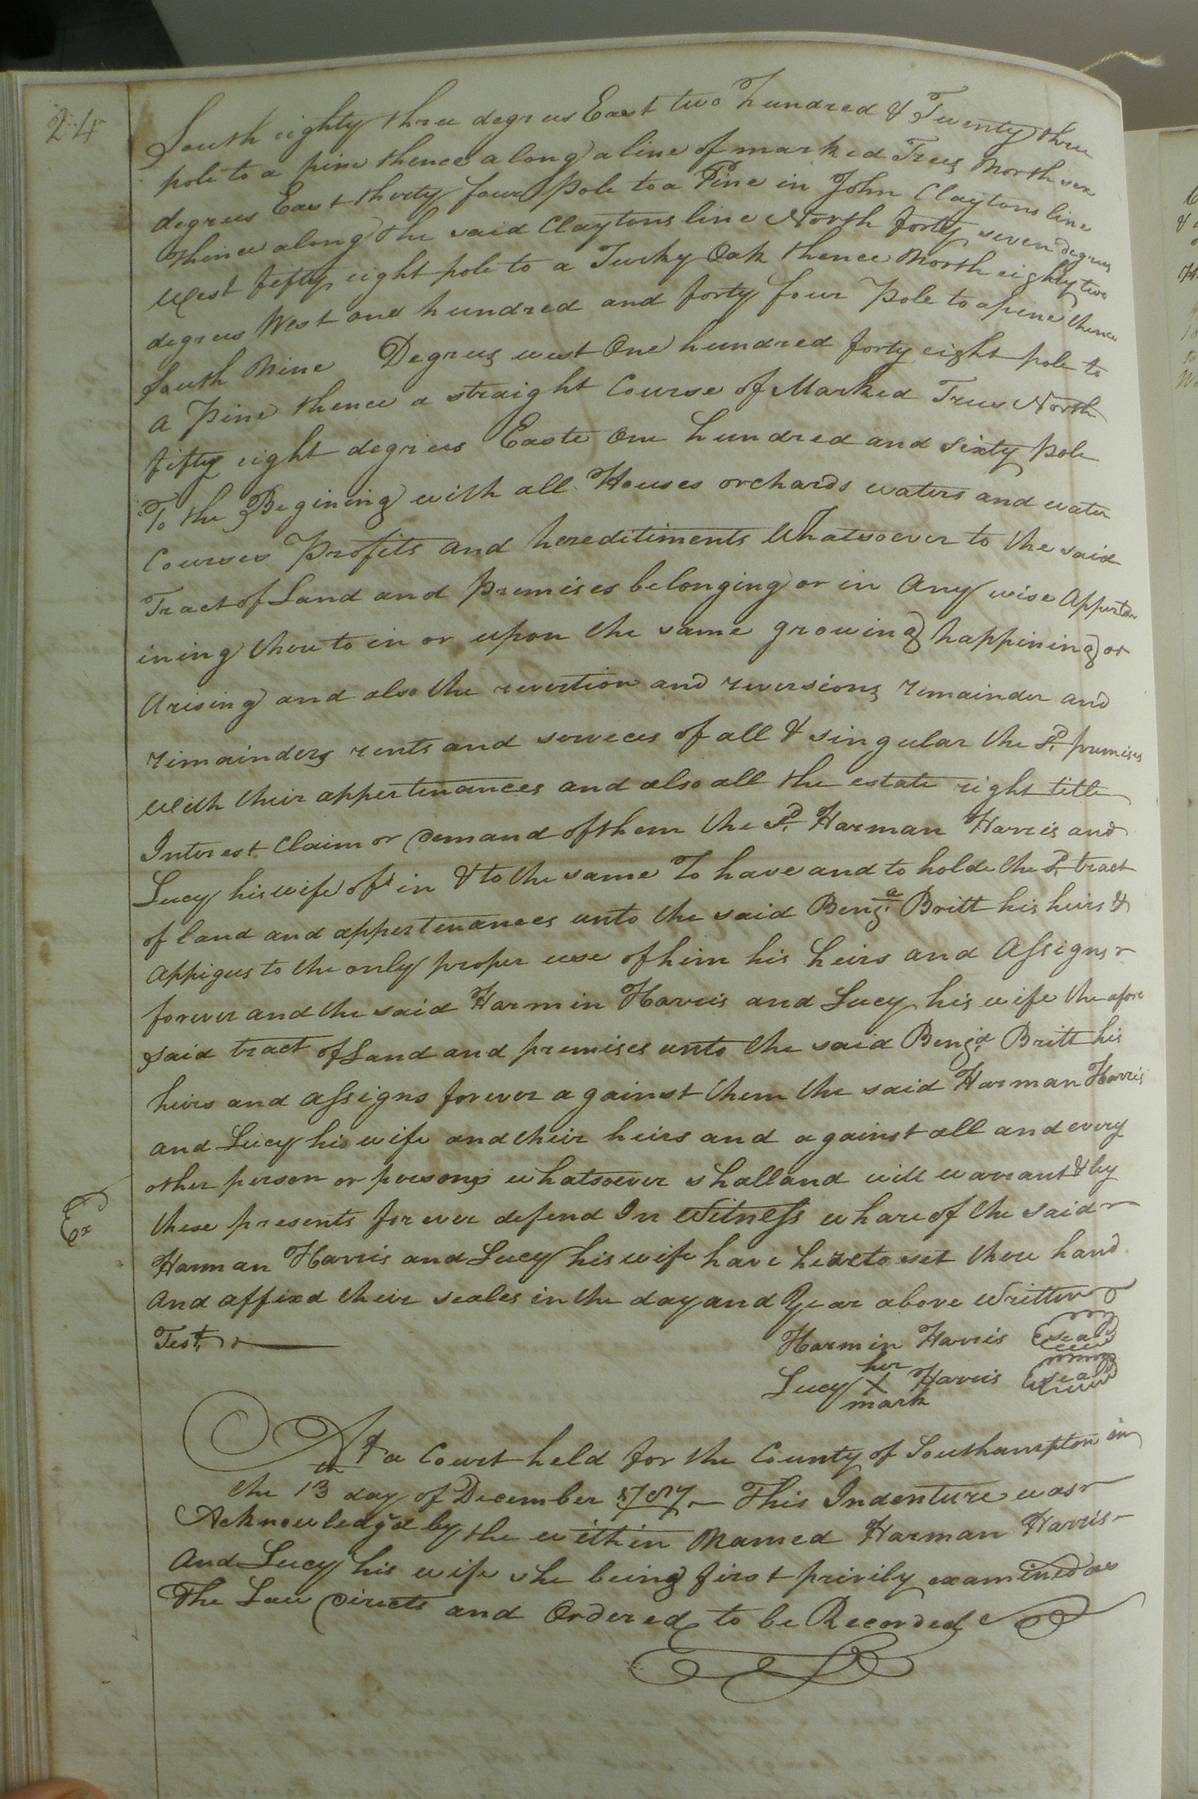 24
South eighty three degrees East two hundred & Twenty three
pole to a pine thence along a line of marked Trees North
degrees East thirty four pole to a Pine in John Claytons line
thence along the said Claytons line North forty seven degrees
West fifty eight pole to a Turky Oak thence North eighty two
degrees West one hundred and forty four Pole to a pine thence
South Nine Degrees west One hundred forty eight pole to
a Pine thence a straight Course of Marked Trees North
fifty eight degrees Easte One hundred and sixty pole
To the Begining with all Houses orchards waters and water
Courses Profits and hereditiments Whatsoever to the said
Tract of Land and premises belonging or in Any wise Apperta
ining thereto in or upon the same growing happining or
Arising and also the revertion and reversions remainder and
remainders rents and serveces of all & singular the sd. premises
With their appertenances and also all the estate right title
Interest Claim or Demand of them the sd. Harman Harris and
Lucy his wife of in & to the same To have and to holde the sd. tract
of land and appertenances unto the said Benja. Britt his heirs &
assigns to the only proper use of him his heirs and Assigns
forever and the said Harmin Harris and Lucy his wife the afore
said tract of Land and premises unto the said Benja. Britt his
heirs and assigns forever against them the said Harman Harris
and Lucy his wife and their heirs and against all and every
other person or persons whatsoever shall and will warrant & by
these presents forever defend In Witness whareof the said
Harman Harris and Lucy his wife have hereto set there hand
And affixd their seales in the day and Year above Written
Test.
Harmin Harris seal
her
Lucy X Harris seal
mark
Ex d
At a Court held for the County of Southampton on
the 13th day of December 1787 This Indenture was
Acknowledg'd by the within Named Harman Harris
And Lucy his wife she being first privily examined as
The Law Directs and Ordered to be Recorded